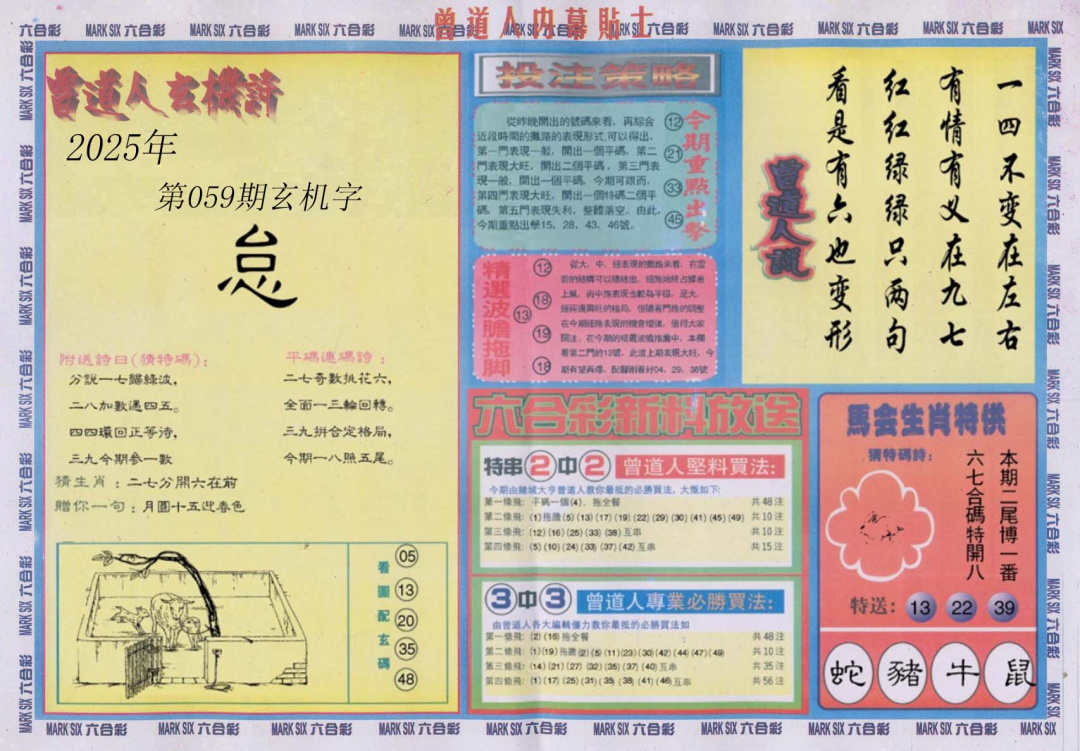 曾道人内幕貼士
MARK SIX 六合彩
曾道人玄機詩
2025年
第059期玄机字
怠
附送詩曰(猜特碼):
分説一七歸綠波,
二八加數遇四五。
四四環回正等待,
三九今期參一數
平碼連碼詩:
二七奇數挑花六,
全面一三輪回轉。
三九拼合定格局,
今期一八照五尾。
猜生肖:二七分開六在前
贈你一句:月圓十五迎春色
看圖配玄碼
05
13
20
35
48
投注策略
從昨晚開出的號碼來看,再綜合
近段時間的攤路的表現形式,可以得出,
第一門表現一般,開出一個平碼,第二
門表現大旺,開出二個平碼,第三門表
現一般,開出一個平碼,今期可跟而,
第四門表現大旺,開出一個特碼二個平
碼,第五門表現失利,整體落空,由此,
今期重點出擊15、28、43、46號。
12
21
33
45
今期重點出擊
精選波膽拖脚
12
18
13
19
18
看第二門的13號,此波上期表現大旺,今
期有望再爆,配腳則看好04、29、36號
六合彩新料放送
特串2中2 曾道人堅料買法:
今期由賭城大亨曾道人教你最抵的必勝買法,大概如下:
第一條飛:平碼一個(4),拖全餐 共48注
第二條飛:(1)拖膽(5)(13)(17)(19)(22)(29)(30)(41)(45)(49) 共10注
第三條飛:(12)(16)(25)(33)(38)互串 共10注
第四條飛:(5)(10)(24)(33)(37)(42)互串 共15注
3中3 曾道人專業必勝買法:
由曾道人各大編輯僅力教你最抵的必勝買法如
第一條飛:(2)(16)拖全餐 共48注
第二條飛:(1)(19)拖膽(2)(5)(11)(23)(30)(42)(44)(47)(49) 共10注
第三條飛:(14)(21)(27)(32)(35)(37)(40)互串 共35注
第四條飛:(1)(17)(25)(31)(35)(38)(41)(46)互串 共56注
曾道人説
一四不变在左右
有情有义在九七
红红绿绿只两句
看是有六也变形
馬会生肖特供
猜特碼詩:
本期二尾博一番
六七合碼特開八
特送: 13 22 39
蛇 豬 牛 鼠